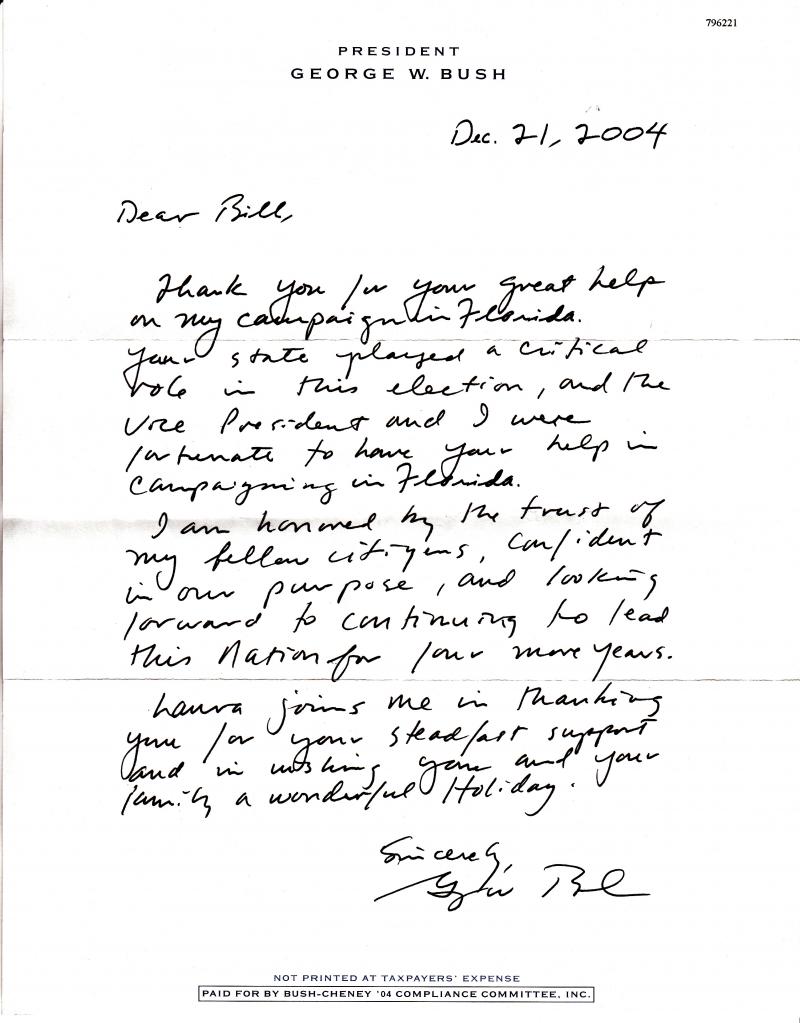 796221
PRESIDENT
GEORGE W. BUSH
Dec. 21, 2004
Dear Bill,
Thank you for your great help
on my campaign in Florida.
Your state played a critical
role in this election, and the
Vice President and I were
fortunate to have your help in
campaigning in Florida.
I am honored by the trust of
my fellow citizens, confident
in our purpose, and looking
forward to continuing to lead
this Nation for four more years.
Laura joins me in thanking
you for your steadfast support
and in wishing you and your
family a wonderful Holiday.
Sincerely,
George Bush
NOT PRINTED AT TAXPAYERS' EXPENSE
PAID FOR BY BUSH-CHENEY '04 COMPLIANCE COMMITTEE, INC.